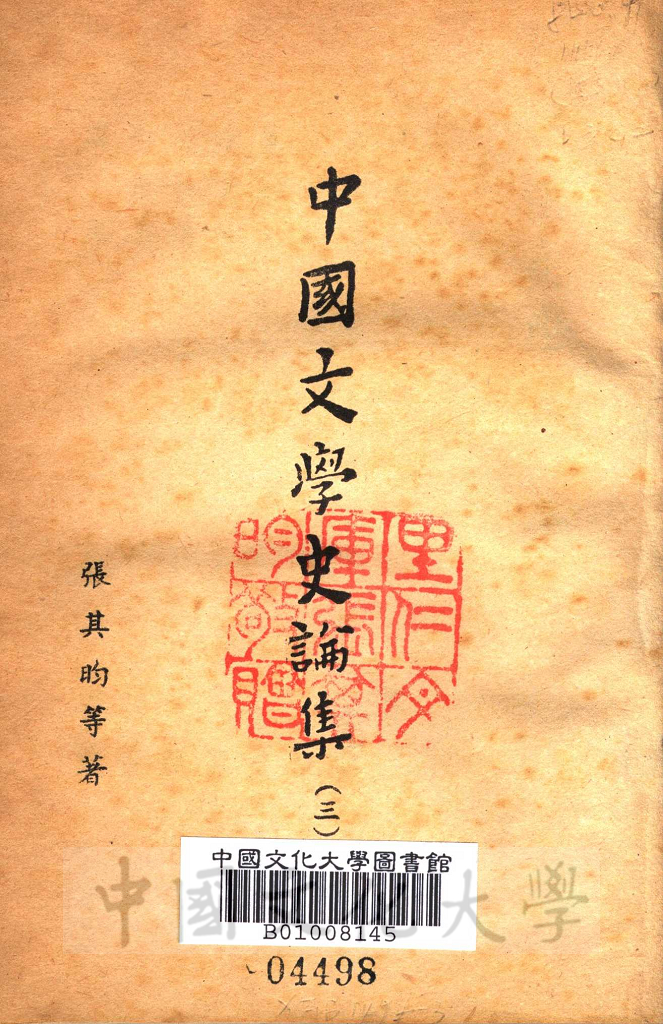 中國文學史論集(三)
張其昀等著
里仁文
庫張其
昀敬贈
中國文化大學圖書館
B01008145
中國文化大學
04498